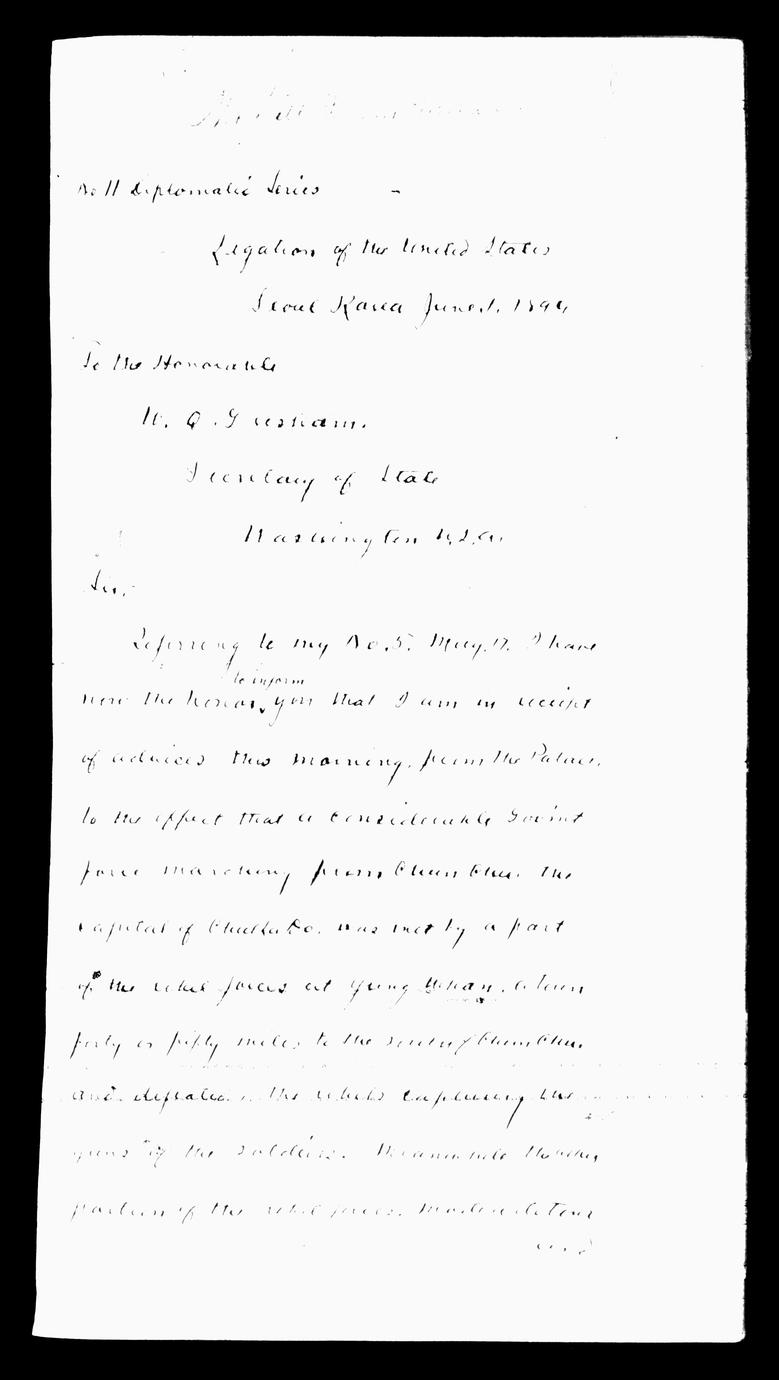 No 11 Diplomatic Series
Legation of the United States
Seoul Korea June 1, 1894
To the Honorable
W. Q. Gresham.
Secretary of State
Washington U.S.A.
Sir,
Referring to my No. 5. May. 17. I have
now the honor, to inform you that I am in receipt
of advices this morning, from the Palace,
to the effect that a considerable Gov'mt
force marching from Chun Chu, the
capital of Chulla Do. was met by a part
of the rebel forces at Yung Whan, a town
forty or fifty miles to the south of Chun Chu
and defeated, the rebels capturing the
guns of the soldiers. Meanwhile the other
portion of the rebel forces. made a detour
and